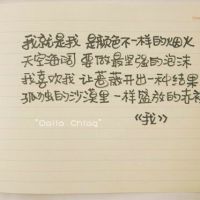 我就是我 是颜色不一样的烟火
天空海阔 要做最坚强的泡沫
我喜欢我 让蔷薇开出一种结果
孤独的沙漠里 一样盛放的赤裸
《我》